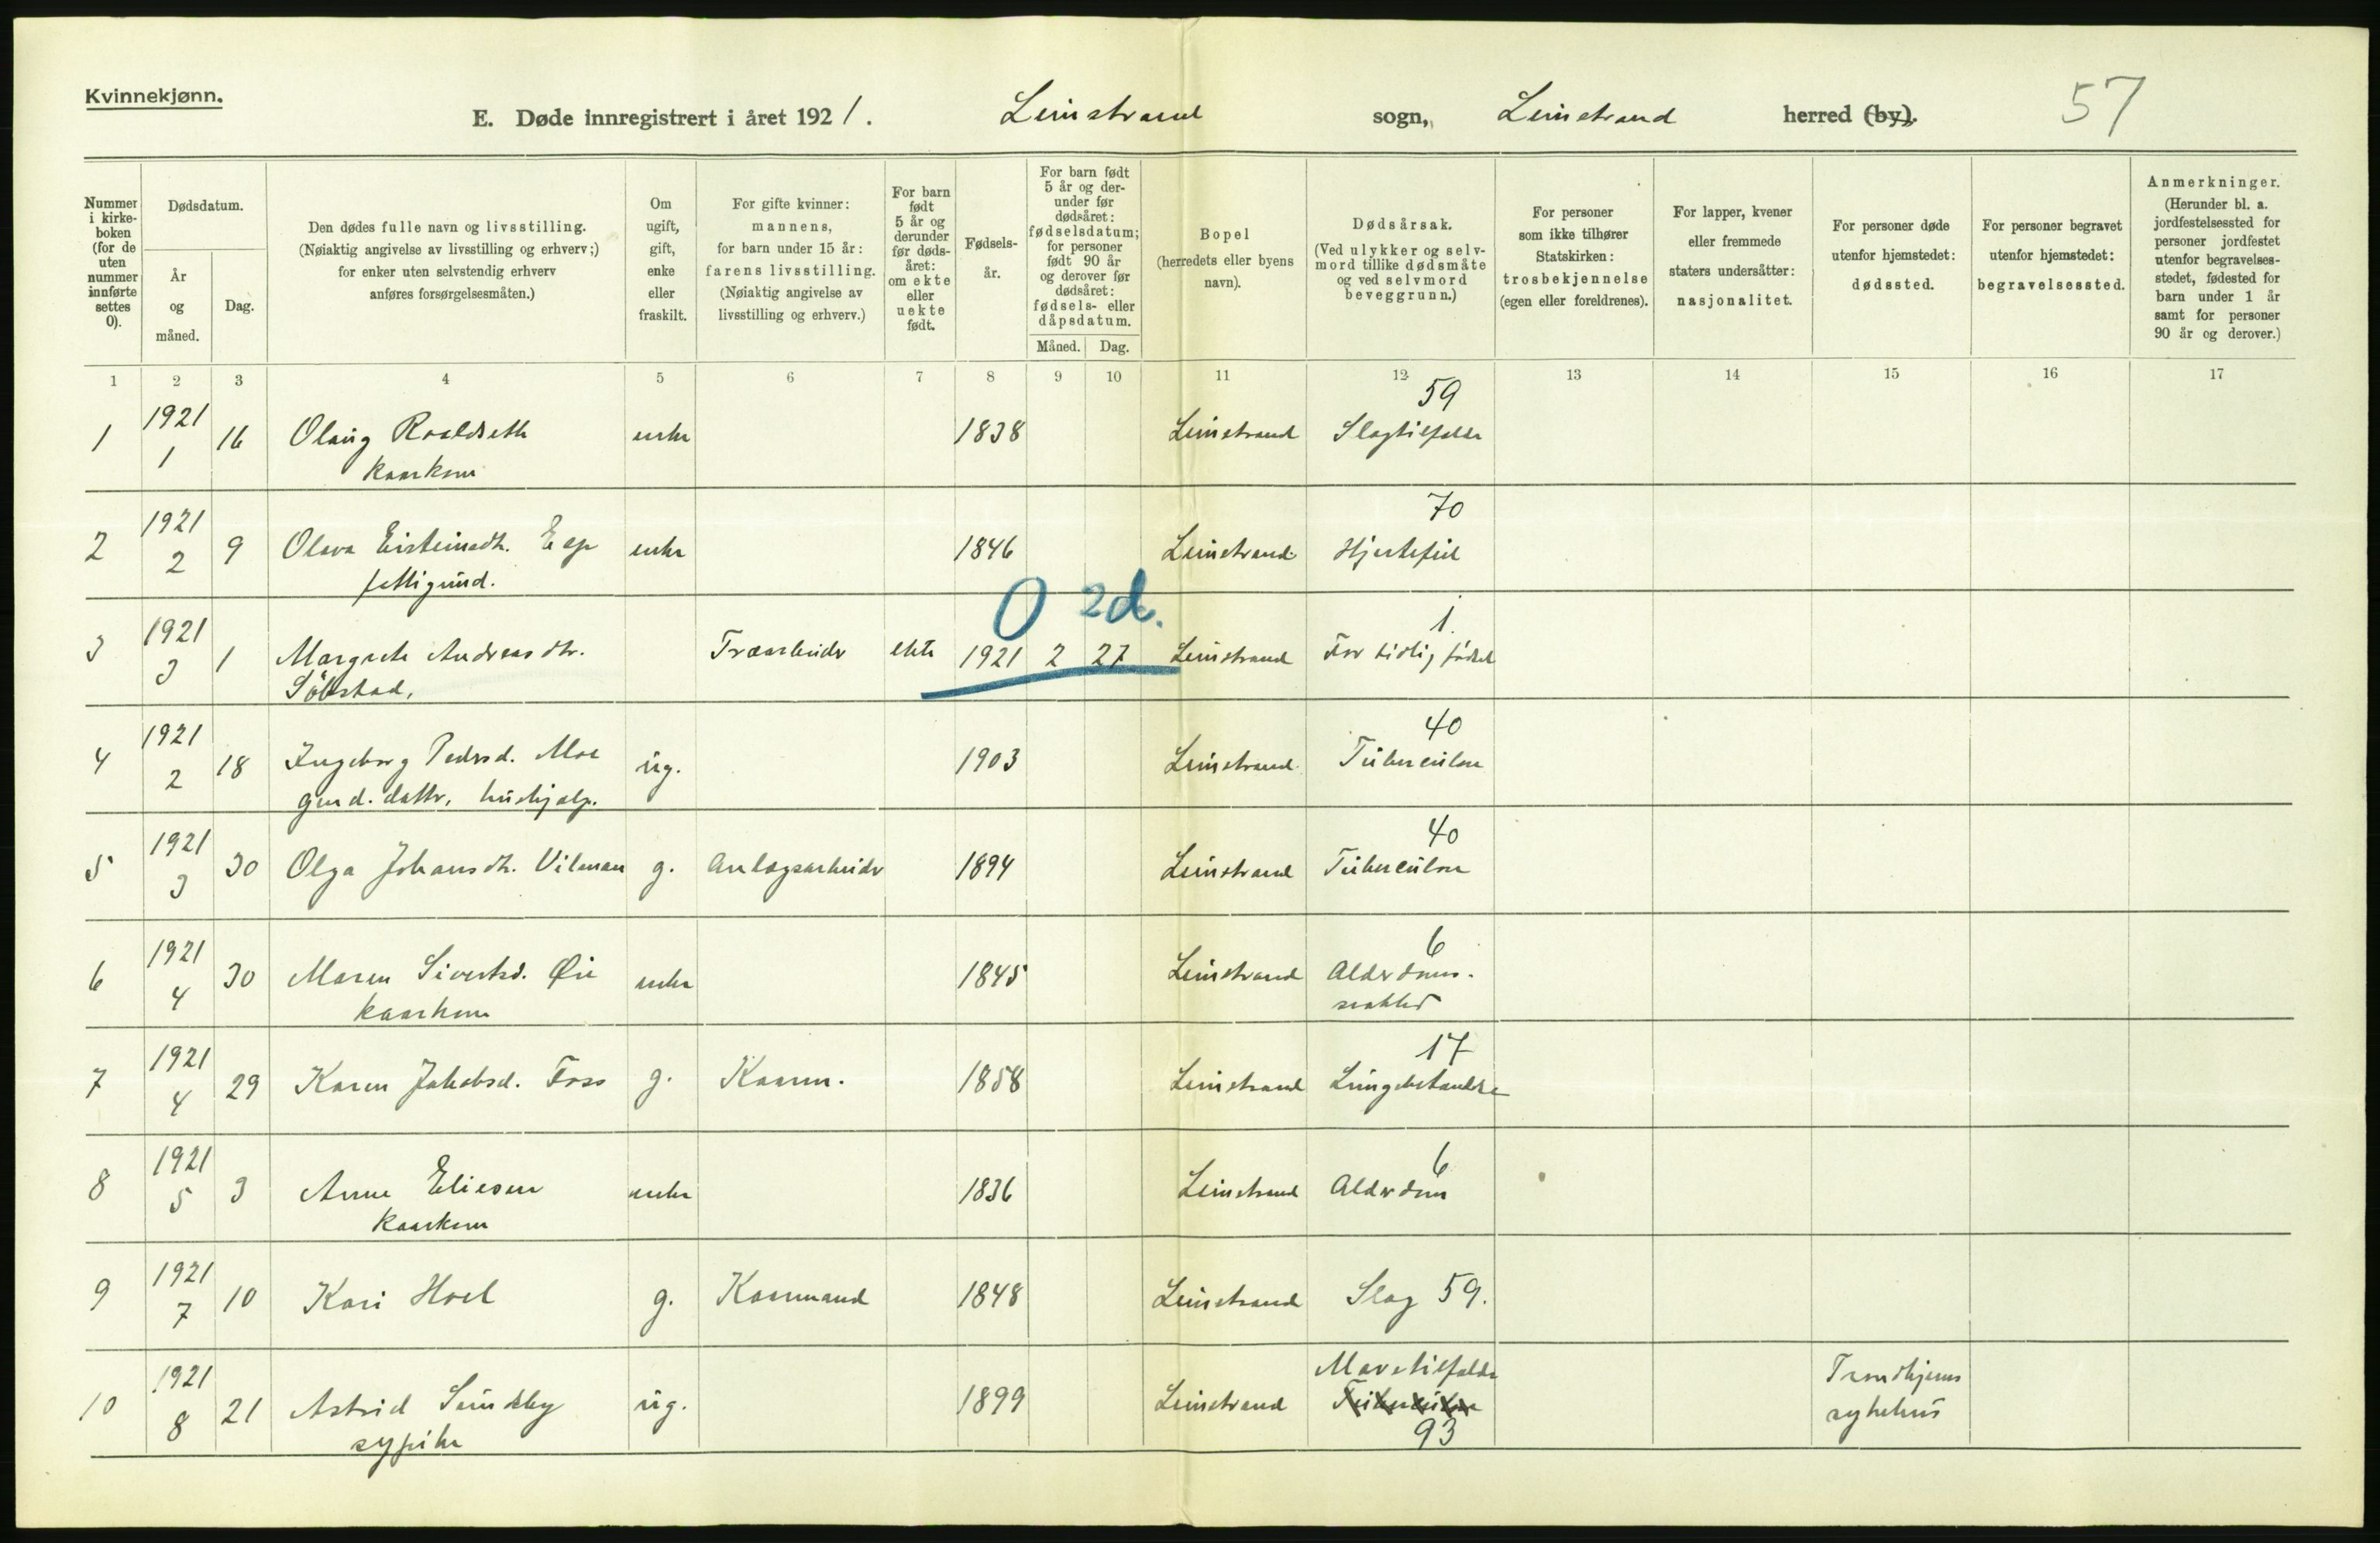 Kvinnekjønn.
E. Døde innregistrert i året 1921. Leinstrand sogn, Leinstrand herred (by). 57
Nummer i kirkeboken (for de uten nummer innførte settes 0).
Dødsdatum.
År og måned.
Dag.
Den dødes fulle navn og livsstilling. (Nøiaktig angivelse av livsstilling og erhverv;) for enker uten selvstendig erhverv anføres forsørgelsesmåten.)
Om ugift, gift, enke eller fraskilt.
For gifte kvinner: mannens, for barn under 15 år: farens livsstilling. (Nøiaktig angivelse av livsstilling og erhverv.)
For barn født 5 år og derunder før dødsåret: om ekte eller uekte født.
Fødselsår.
For barn født 5 år og derunder før dødsåret: fødselsdatum; for personer født 90 år og derover før dødsåret: fødsels- eller dåpsdatum.
Måned. Dag.
Bopel (herredets eller byens navn).
Dødsårsak. (Ved ulykker og selvmord tillike dødsmåte og ved selvmord beveggrunn.)
For personer som ikke tilhører Statskirken: trosbekjennelse (egen eller foreldrenes).
For lapper, kvener eller fremmede staters undersåtter: nasjonalitet.
For personer døde utenfor hjemstedet: dødssted.
For personer begravet utenfor hjemstedet: begravelsessted.
Anmerkninger. (Herunder bl. a. jordfestelsessted for personer jordfestet utenfor begravelsesstedet, fødested for barn under 1 år samt for personer 90 år og derover.)
1 2 3 4 5 6 7 8 9 10 11 12 13 14 15 16 17
1921 59
1 1 16 Olaug Roaldseth enke 1838 Leinstrand Slagtilfælde
Kaarkone
1921 70
2 2 9 Olava Eisteinsdtr. Esp enke 1846 Leinstrand Hjertefeil
fattigund.
0 2d.
1921 1.
3 3 1 Margrete Andreasdtr. Træarbeider ekte 1921 2 27 Leinstrand For tidlig født
Söbstad.
1921 40
4 2 18 Ingeborg Pedersd. Moe ug. 1903 Leinstrand Tuberculose
grd. datter, hushjelp.
1921 40
5 3 30 Olga Johansdtr. g. Anlægsarbeider 1894 Leinstrand Tuberculose
1921 6
6 4 30 Maren Sivertsd. Øie enke 1845 Leinstrand Alderdoms-
Kaarkone svakhed
1921 17
7 4 29 Karen Jakobsd. Foss g. Kaarm. 1858 Leinstrand Lungebetændelse
1921 6
8 5 3 Anne Eliesen enke 1836 Leinstrand Alderdom
Kaarkone
1921
9 7 10 Kari Hoel g. Kaarmand 1848 Leinstrand Slag 59.
1921 Mavetilfælde Trondhjems
10 8 21 Astrid Sundsby ug. 1899 Leinstrand Tuberculose sykehus
sypike 93